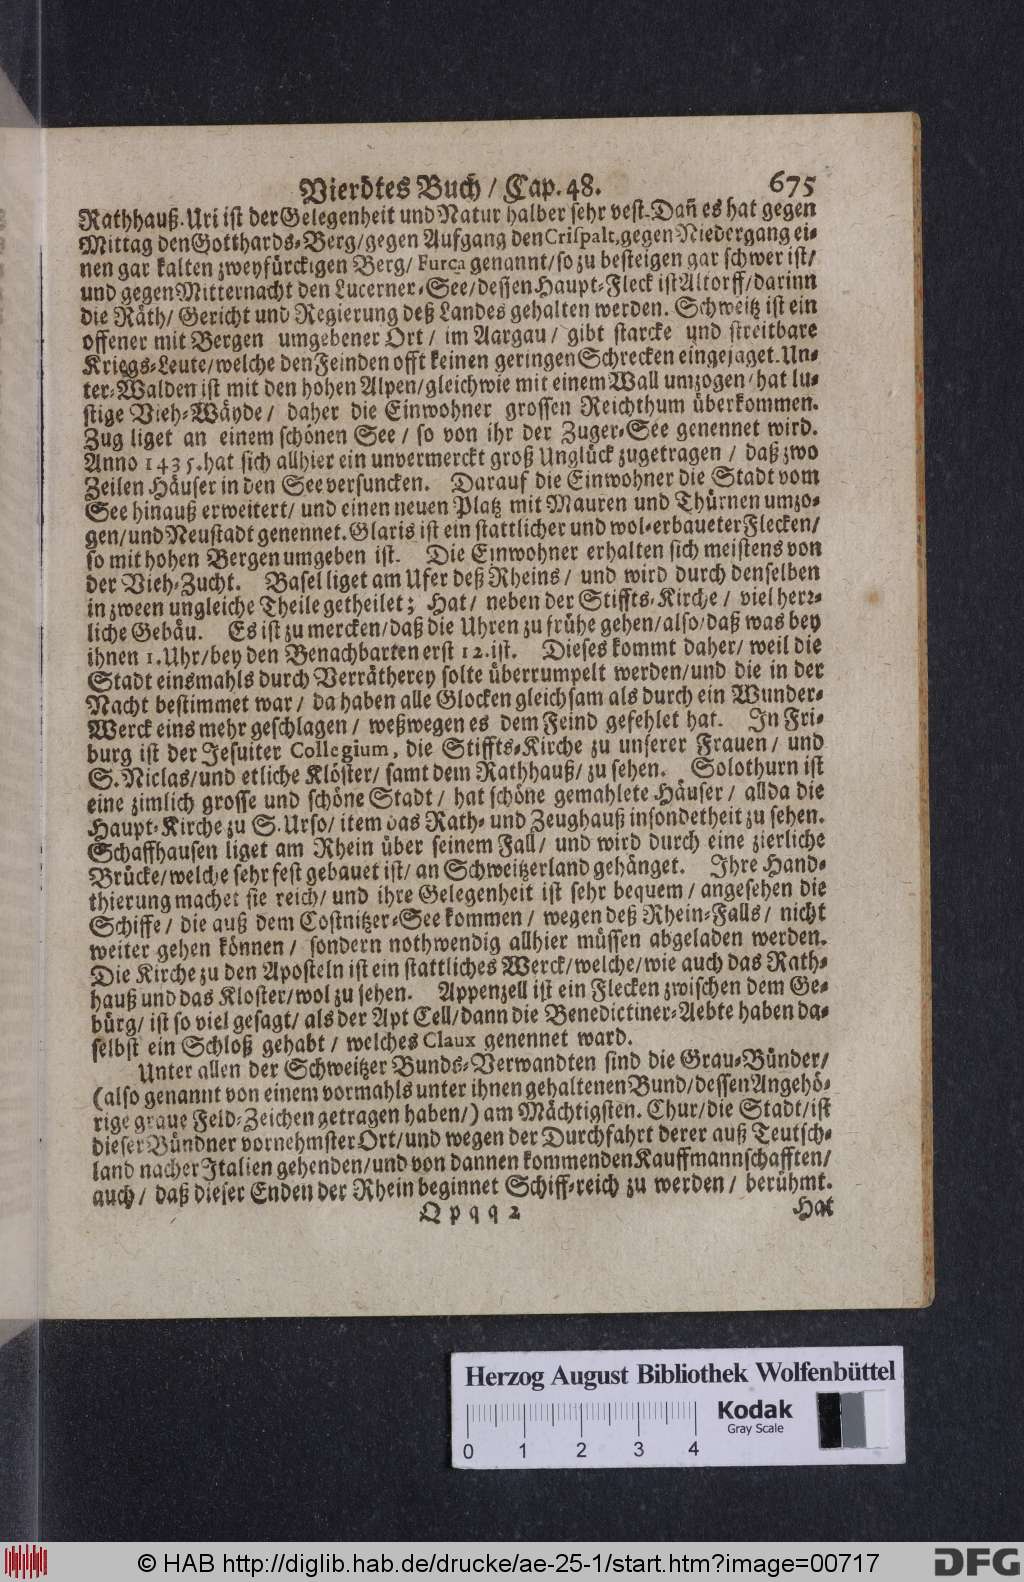 Vierdtes Buch / Cap. 48. 675
Rathhauß. Uri ist der Gelegenheit und Natur halber sehr vest. Dañ es hat gegen
Mittag den Gotthards-Berg/ gegen Aufgang den Crispalt, gegen Niedergang ei-
nen gar kalten zweyfürckigen Berg/ Furca genannt/ so zu besteigen gar schwer ist/
und gegen Mitternacht den Lucerner-See/ dessen Haupt-Fleck ist Altorff/ darinn
die Räth/ Gericht und Regierung deß Landes gehalten werden. Schweitz ist ein
offener mit Bergen umgebener Ort/ im Aargau/ gibt starcke und streitbare
Kriegs-Leute/ welche den Feinden offt keinen geringen Schrecken eingejaget. Un-
ter-Walden ist mit den hohen Alpen/ gleich wie mit einem Wall umzogen/ hat lu-
stige Vieh-Wäyde/ daher die Einwohner grossen Reichthum überkommen.
Zug liget an einem schönen See/ so von ihr der Zuger-See genennet wird.
Anno 1435. hat sich allhier ein unvermerckt groß Unglück zugetragen/ daß zwo
Zeilen Häuser in den See versuncken. Darauf die Einwohner die Stadt vom
See hinauß erweitert/ und einen neuen Platz mit Mauren und Thürnen umzo-
gen/ und Neustadt genennet. Glaris ist ein stattlicher und wol-erbaueter Flecken/
so mit hohen Bergen umgeben ist. Die Einwohner erhalten sich meistens von
der Vieh-Zucht. Basel liget am Ufer deß Rheins/ und wird durch denselben
in zween ungleiche Theile getheilet; Hat/ neben der Stiffts-Kirche/ viel herr-
liche Gebäu. Es ist zu mercken/ daß die Uhren zu frühe gehen/ also/ daß was bey
ihnen 1. Uhr/ bey den Benachbarten erst 12. ist. Dieses kommt daher/ weil die
Stadt einsmahls durch Verrätherey solte überrumpelt werden/ und die in der
Nacht bestimmet war/ da haben alle Glocken gleichsam als durch ein Wunder-
Werck eins mehr geschlagen/ weßwegen es dem Feind gefehlet hat. In Fri-
burg ist der Jesuiter Collegium, die Stiffts-Kirche zu unserer Frauen/ und
S. Niclas/ und etliche Klöster/ samt dem Rathhauß/ zu sehen. Solothurn ist
eine zimlich grosse und schöne Stadt/ hat schöne gemahlete Häuser/ allda die
Haupt-Kirche zu S. Urso/ item das Rath- und Zeughauß insondetheit zu sehen.
Schaffhausen liget am Rhein über seinem Fall/ und wird durch eine zierliche
Brücke/ welche sehr fest gebauet ist/ an Schweitzerland gehänget. Ihre Hand-
thierung machet sie reich/ und ihre Gelegenheit ist sehr bequem/ angesehen die
Schiffe/ die auß dem Costnitzer-See kommen/ wegen deß Rhein-Falls/ nicht
weiter gehen können/ sondern nothwendig allhier müssen abgeladen werden.
Die Kirche zu den Aposteln ist ein stattliches Werck/ welche/ wie auch das Rath-
hauß und das Kloster/ wol zu sehen. Appenzell ist ein Flecken zwischen dem Ge-
bürg/ ist so viel gesagt/ als der Apt Cell/ dann die Benedictiner-Aebte haben da-
selbst ein Schloß gehabt/ welches Claux genennet ward.
Unter allen der Schweitzer Bunds-Verwandten sind die Grau-Bünder/
(also genannt von einem vormahls unter ihnen gehaltenen Bund/ dessen Angehö-
rige graue Feld-Zeichen getragen haben/) am Mächtigsten. Chur/ die Stadt/ ist
dieser Bündner vornehmster Ort/ und wegen der Durchfahrt derer auß Teutsch-
land nacher Italien gehenden/ und von dannen kommenden Kauffmannschafften/
auch/ daß dieser Enden der Rhein beginnet Schiff-reich zu werden/ berühmt.
Qpqq 2 Hat
Herzog August Bibliothek Wolfenbüttel
Kodak
Gray Scale
0 1 2 3 4
© HAB http://diglib.hab.de/drucke/ae-25-1/start.htm?image=00717
DFG